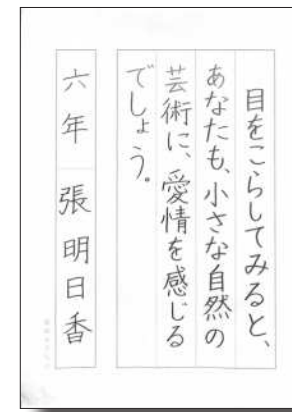 目をこらしてみると、
あなたも、小さな自然の
芸術に、愛情を感じる
でしょう。
六年 張明日香